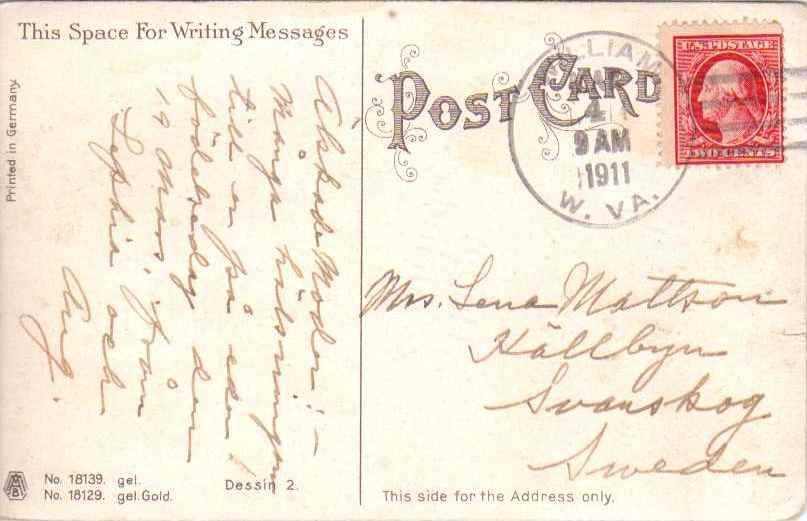 This Space For Writing Messages
Printed in Germany.
Älskade Moder! –
Många hälsningar
till er på eder
födelsedag den
19 Mars, från
Sophia och
Aug.
No. 18139. gel.
No. 18129. gel. Gold.
Dessin 2.
POST CARD
WILLIAM
4
9 AM
1911
W. VA.
U.S. POSTAGE
TWO CENTS
Mrs. Lena Mattson
Hällbyn
Svanskog
Sweden
This side for the Address only.